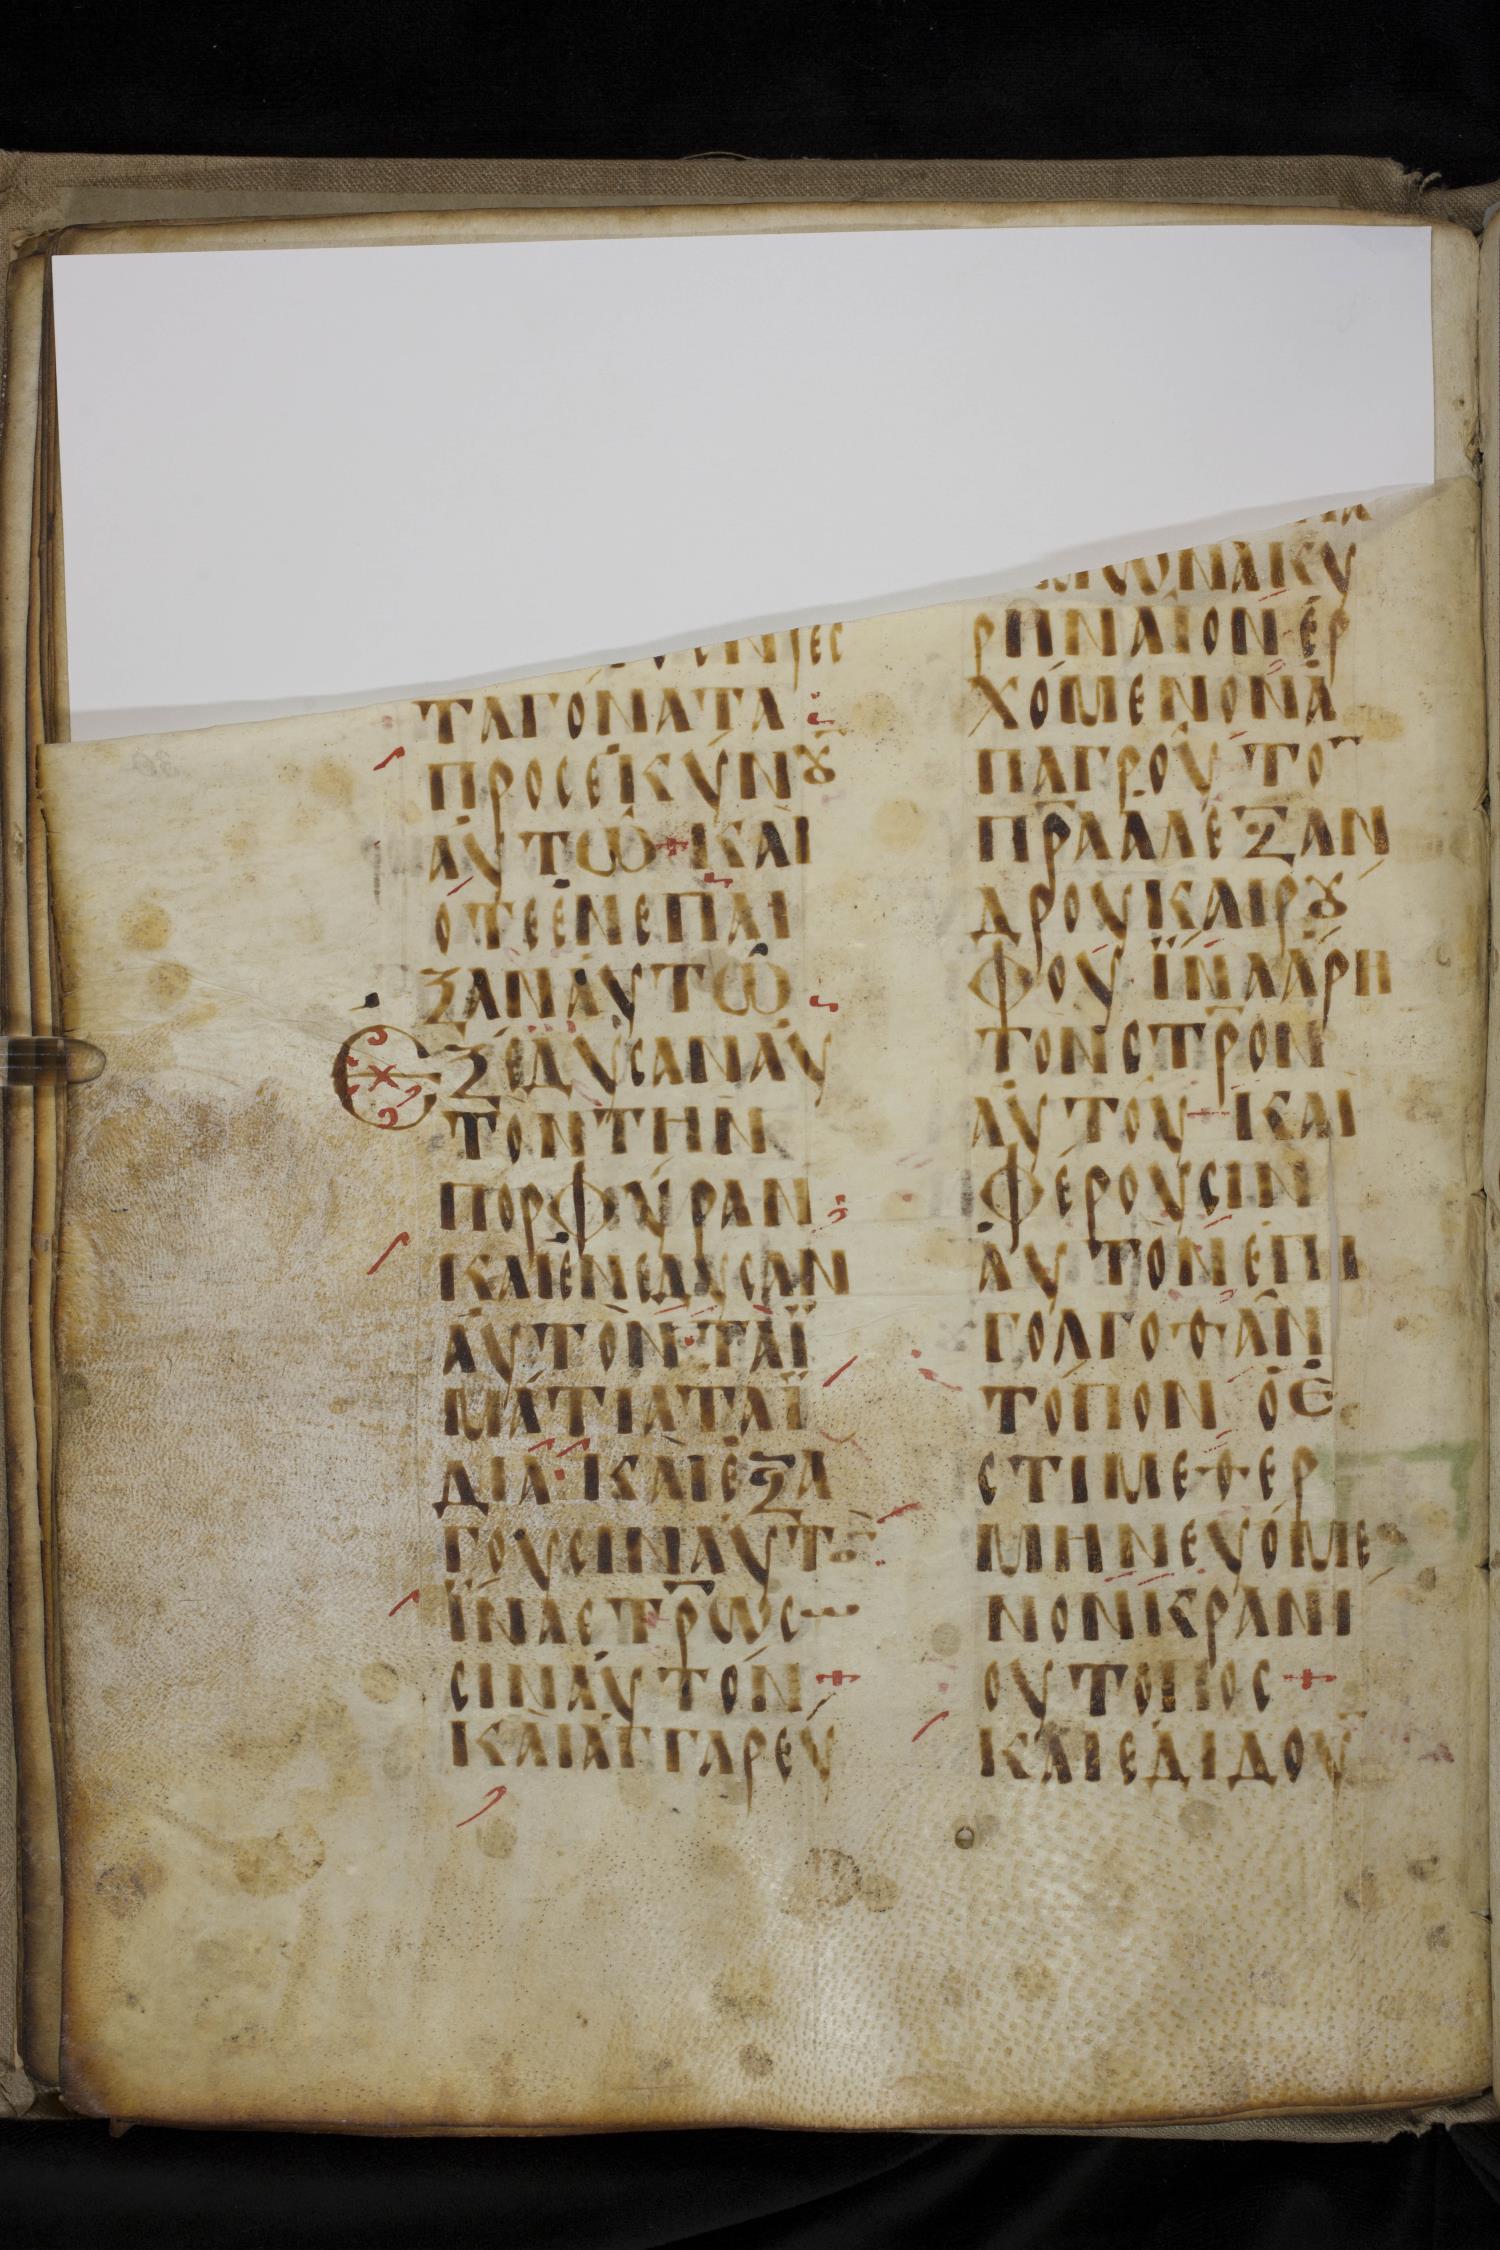 ΤΑΓΟΝΑΤΑ
ΠΡΟСΕΚΥΝȢ
ΑΥΤΩ + ΚΑΙ
ΟΤΕΕΝΕΠΑΙ
ΞΑΝΑΥΤΩ
ΕΞΕΔΥСΑΝΑΥ
ΤΟΝΤΗΝ
ΠΟΡΦΥΡΑΝ
ΚΑΙΕΝΕΔΥСΑΝ
ΑΥΤΟΝ·ΤΑΪ
ΜΑΤΙΑΤΑΪ
ΔΙΑ·ΚΑΙΕΞΑ
ΓΟΥСΙΝΑΥΤΟ̅
ΪΝΑСΤ̅Ρ̅ΩСΩ
СΙΝΑΥΤΟΝ +
ΚΑΙΑΓΓΑΡΕΥ
ΜΩΝΑΚΥ
ΡΗΝΑΙΟΝΕΡ
ΧΟΜΕΝΟΝΑ
ΠΑΓΡΟΥΤΟ̅
Π̅Ρ̅Α̅ΑΛΕΞΑΝ
ΔΡΟΥΚΑΙΡȢ
ΦΟΥ ΪΝΑΑΡΗ
ΤΟΝСΤ̅Ρ̅ΟΝ
ΑΥΤΟΥ + ΚΑΙ
ΦΕΡΟΥСΙΝ
ΑΥΤΟΝΕΠΙ
ΓΟΛΓΟΘΑΝ
ΤΟΠΟΝ ΟΕ
СΤΙΜΕΘΕΡ
ΜΗΝΕΥΟΜΕ
ΝΟΝΚΡΑΝΙ
ΟΥΤΟΠΟС +
ΚΑΙΕΔΙΔΟΥ